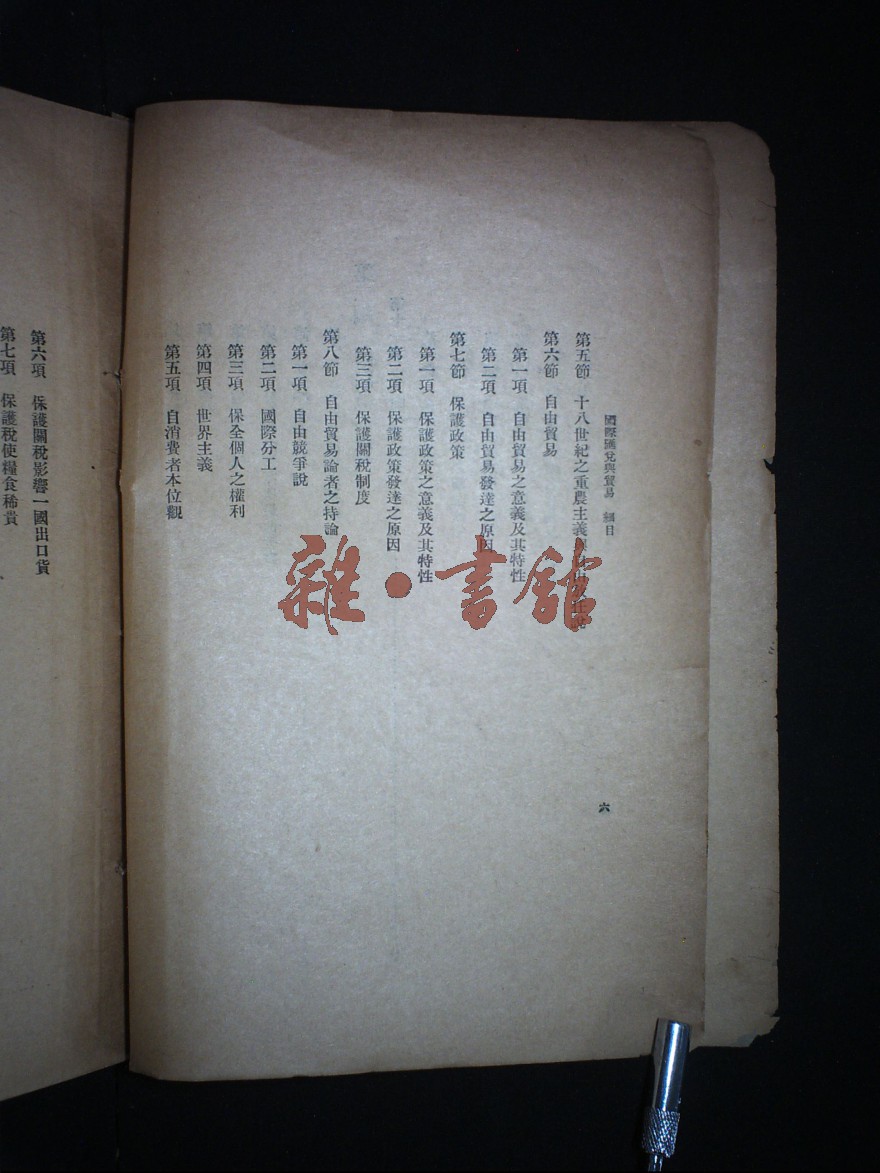 國際匯兌與貿易 細目
六
第五節 十八世紀之重農主義與自由放任說
第六節 自由貿易
第一項 自由貿易之意義及其特性
第二項 自由貿易發達之原因
第七節 保護政策
第一項 保護政策之意義及其特性
第二項 保護政策發達之原因
第三項 保護關稅制度
第八節 自由貿易論者之持論
第一項 自由競爭說
第二項 國際分工
第三項 保全個人之權利
第四項 世界主義
第五項 自消費者本位觀
第六項 保護關稅影響一國出口貨
第七項 保護稅使糧食稀貴
雜·書館